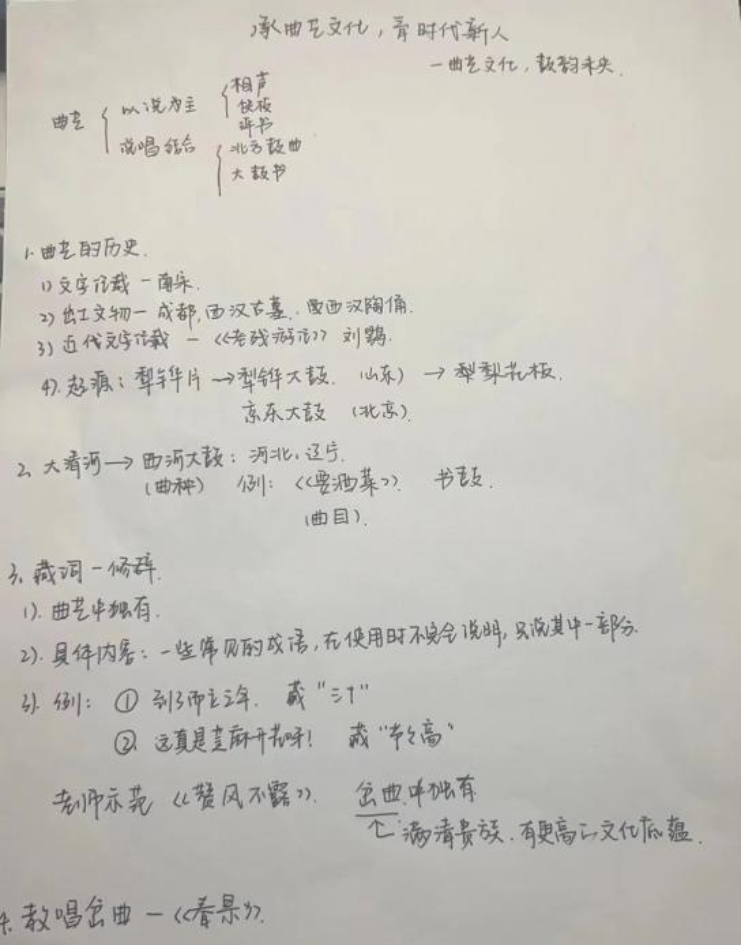 承曲艺文化，育时代新人
一曲艺文化，鼓韵未央.
曲艺
以说为主
相声
快板
评书
说唱结合
北方鼓曲
大鼓书
1.曲艺的历史.
1) 文字记载 - 南宋.
2) 出土文物 - 成都,西汉古墓.西汉陶俑.
3) 近代文字记载 - 《老残游记》 刘鹗.
4). 起源：犁铧片→犁铧大鼓. (山东) → 梨花板.
京东大鼓 (北京).
2. 大清河 → 西河大鼓：河北,辽宁.
(曲种) 例：《要酒菜》. 书鼓.
(曲目).
3. 藏词 - 修辞.
1). 曲艺中独有.
2). 具体内容：一些常见的成语,在使用时不完全说明,只说其中一部分.
3). 例： ① 到了师主三年. 藏 "三寸"
② 这真是芝麻开花呀！ 藏 "节节高"
老师示范 《赞风不露》. 岔曲中独有
↑：满清贵族.有更高的文化底蕴.
4. 教唱岔曲 - 《春景》.